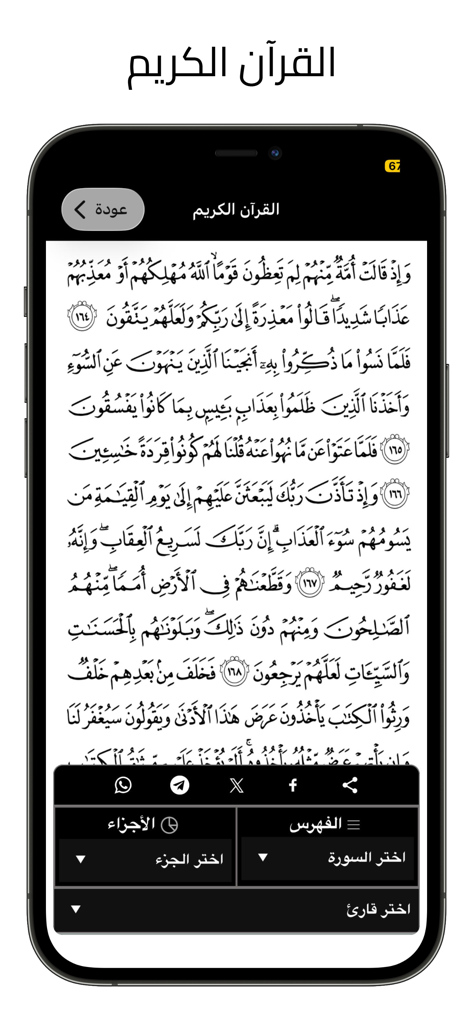 القرآن الكريم
67
القرآن الكريم
عودة
وَإِذۡ قَالَتۡ أُمَّةٞ مِّنۡهُمۡ لِمَ تَعِظُونَ قَوۡمًا ٱللَّهُ مُهۡلِكُهُمۡ أَوۡ مُعَذِّبُهُمۡ
عَذَابٗا شَدِيدٗاۖ قَالُواْ مَعۡذِرَةً إِلَىٰ رَبِّكُمۡ وَلَعَلَّهُمۡ يَتَّقُونَ ١٦٤
فَلَمَّا نَسُواْ مَا ذُكِّرُواْ بِهِۦٓ أَنجَيۡنَا ٱلَّذِينَ يَنۡهَوۡنَ عَنِ ٱلسُّوٓءِ
وَأَخَذۡنَا ٱلَّذِينَ ظَلَمُواْ بِعَذَابِۭ بَـِٔيسِۭ بِمَا كَانُواْ يَفۡسُقُونَ
١٦٥ فَلَمَّا عَتَوۡاْ عَن مَّا نُهُواْ عَنۡهُ قُلۡنَا لَهُمۡ كُونُواْ قِرَدَةً خَٰسِـِٔينَ
١٦٦ وَإِذۡ تَأَذَّنَ رَبُّكَ لَيَبۡعَثَنَّ عَلَيۡهِمۡ إِلَىٰ يَوۡمِ ٱلۡقِيَٰمَةِ مَن
يَسُومُهُمۡ سُوٓءَ ٱلۡعَذَابِۗ إِنَّ رَبَّكَ لَسَرِيعُ ٱلۡعِقَابِ وَإِنَّهُۥ
لَغَفُورٞ رَّحِيمٞ ١٦٧ وَقَطَّعۡنَٰهُمۡ فِي ٱلۡأَرۡضِ أُمَمٗاۖ مِّنۡهُمُ
ٱلصَّٰلِحُونَ وَمِنۡهُمۡ دُونَ ذَٰلِكَۖ وَبَلَوۡنَٰهُم بِٱلۡحَسَنَٰتِ
وَٱلسَّيِّـَٔاتِ لَعَلَّهُمۡ يَرۡجِعُونَ ١٦٨ فَخَلَفَ مِنۢ بَعۡدِهِمۡ خَلۡفٞ
وَرِثُواْ ٱلۡكِتَٰبَ يَأۡخُذُونَ عَرَضَ هَٰذَا ٱلۡأَدۡنَىٰ وَيَقُولُونَ سَيُغۡفَرُ لَنَا
وَإِن يَأۡتِهِمۡ عَرَضٞ مِّثۡلُهُۥ يَأۡخُذُوهُۚ أَلَمۡ يُؤۡخَذۡ عَلَيۡهِم مِّيثَٰقُ ٱلۡكِتَٰبِ
الفهرس
الأجزاء
اختر السورة
اختر الجزء
اختر قارئ